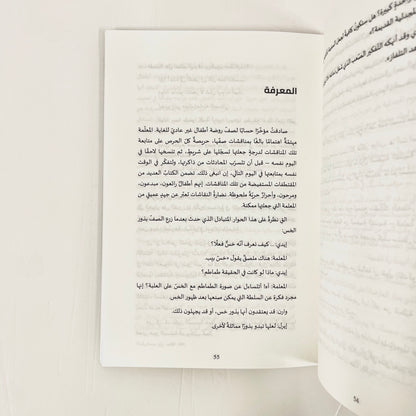 المعرفة
صادفتُ مؤخّرًا حسابًا لصفّ روضة أطفال غير عاديّ للغاية. المعلّمة
مهتمّة اهتمامًا بالغًا بمناقشات صفّها، حريصةٌ كلّ الحرص على متابعة
تلك المناقشات لدرجة جعلتها تسجّلها على شريط، ثم تنسخها لاحقًا في
اليوم نفسه – قبل أن تتسرّب المحادثات من ذاكرتها، ولتفكّر في الوقت
بمتابعتها في اليوم التالي، إن انبغى ذلك. تضمن الكتاب العديد من
المقتطفات المستفيضة من تلك المناقشات. إنهم أطفالٌ رائعون، مبدعون،
ومرحون، وأحرارٌ بحرّيّة ملحوظة. نضارة تفكيرهم تعبّر عن جهدٍ عميقٍ من
المعلمة التي جعلتها ممكنة.
ألقِ نظرةً على هذا الحوار المتبادل الذي حدث بعدما زرع الصفّ بذور
الخس:
إيدي: .. كيف نعرف أنّه خسٌّ فعلًا؟
المعلمة: هناك ملصقٌ يقول «خسّ بيب.
إيدي: ماذا لو كانت في الحقيقة طماطم؟
المعلمة: آه! أتتساءل عن صورة الطماطم مع الخسّ على العلبة؟ إنها
مجرد فكرة عن السلطة التي يمكن صنعها بعد ظهور الخس.
وارن: قد يعتقدون أنها بذور خس، أو قد يجهلون ذلك.
إيرل: لعلها تبدو بذورًا مماثلة لأخرى.
55
54